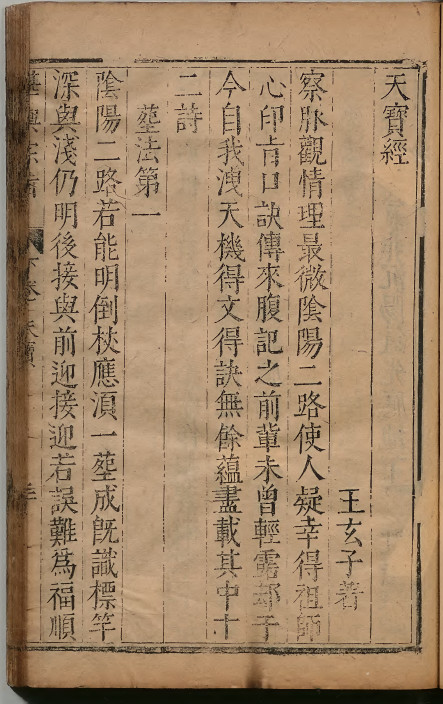 天寶經
王玄子著
察脉觀情理最微陰陽二路使人疑幸得祖師
心印肯口訣傳來腹記之前輩未曾輕電却于
今自我洩天機得文得訣無餘蘊盡載其中十
二詩
塟法第一
陰陽二路若能明倒杖應湏一塟成旣識標竿
深與淺仍明後接與前迎接迎若誤難爲福順